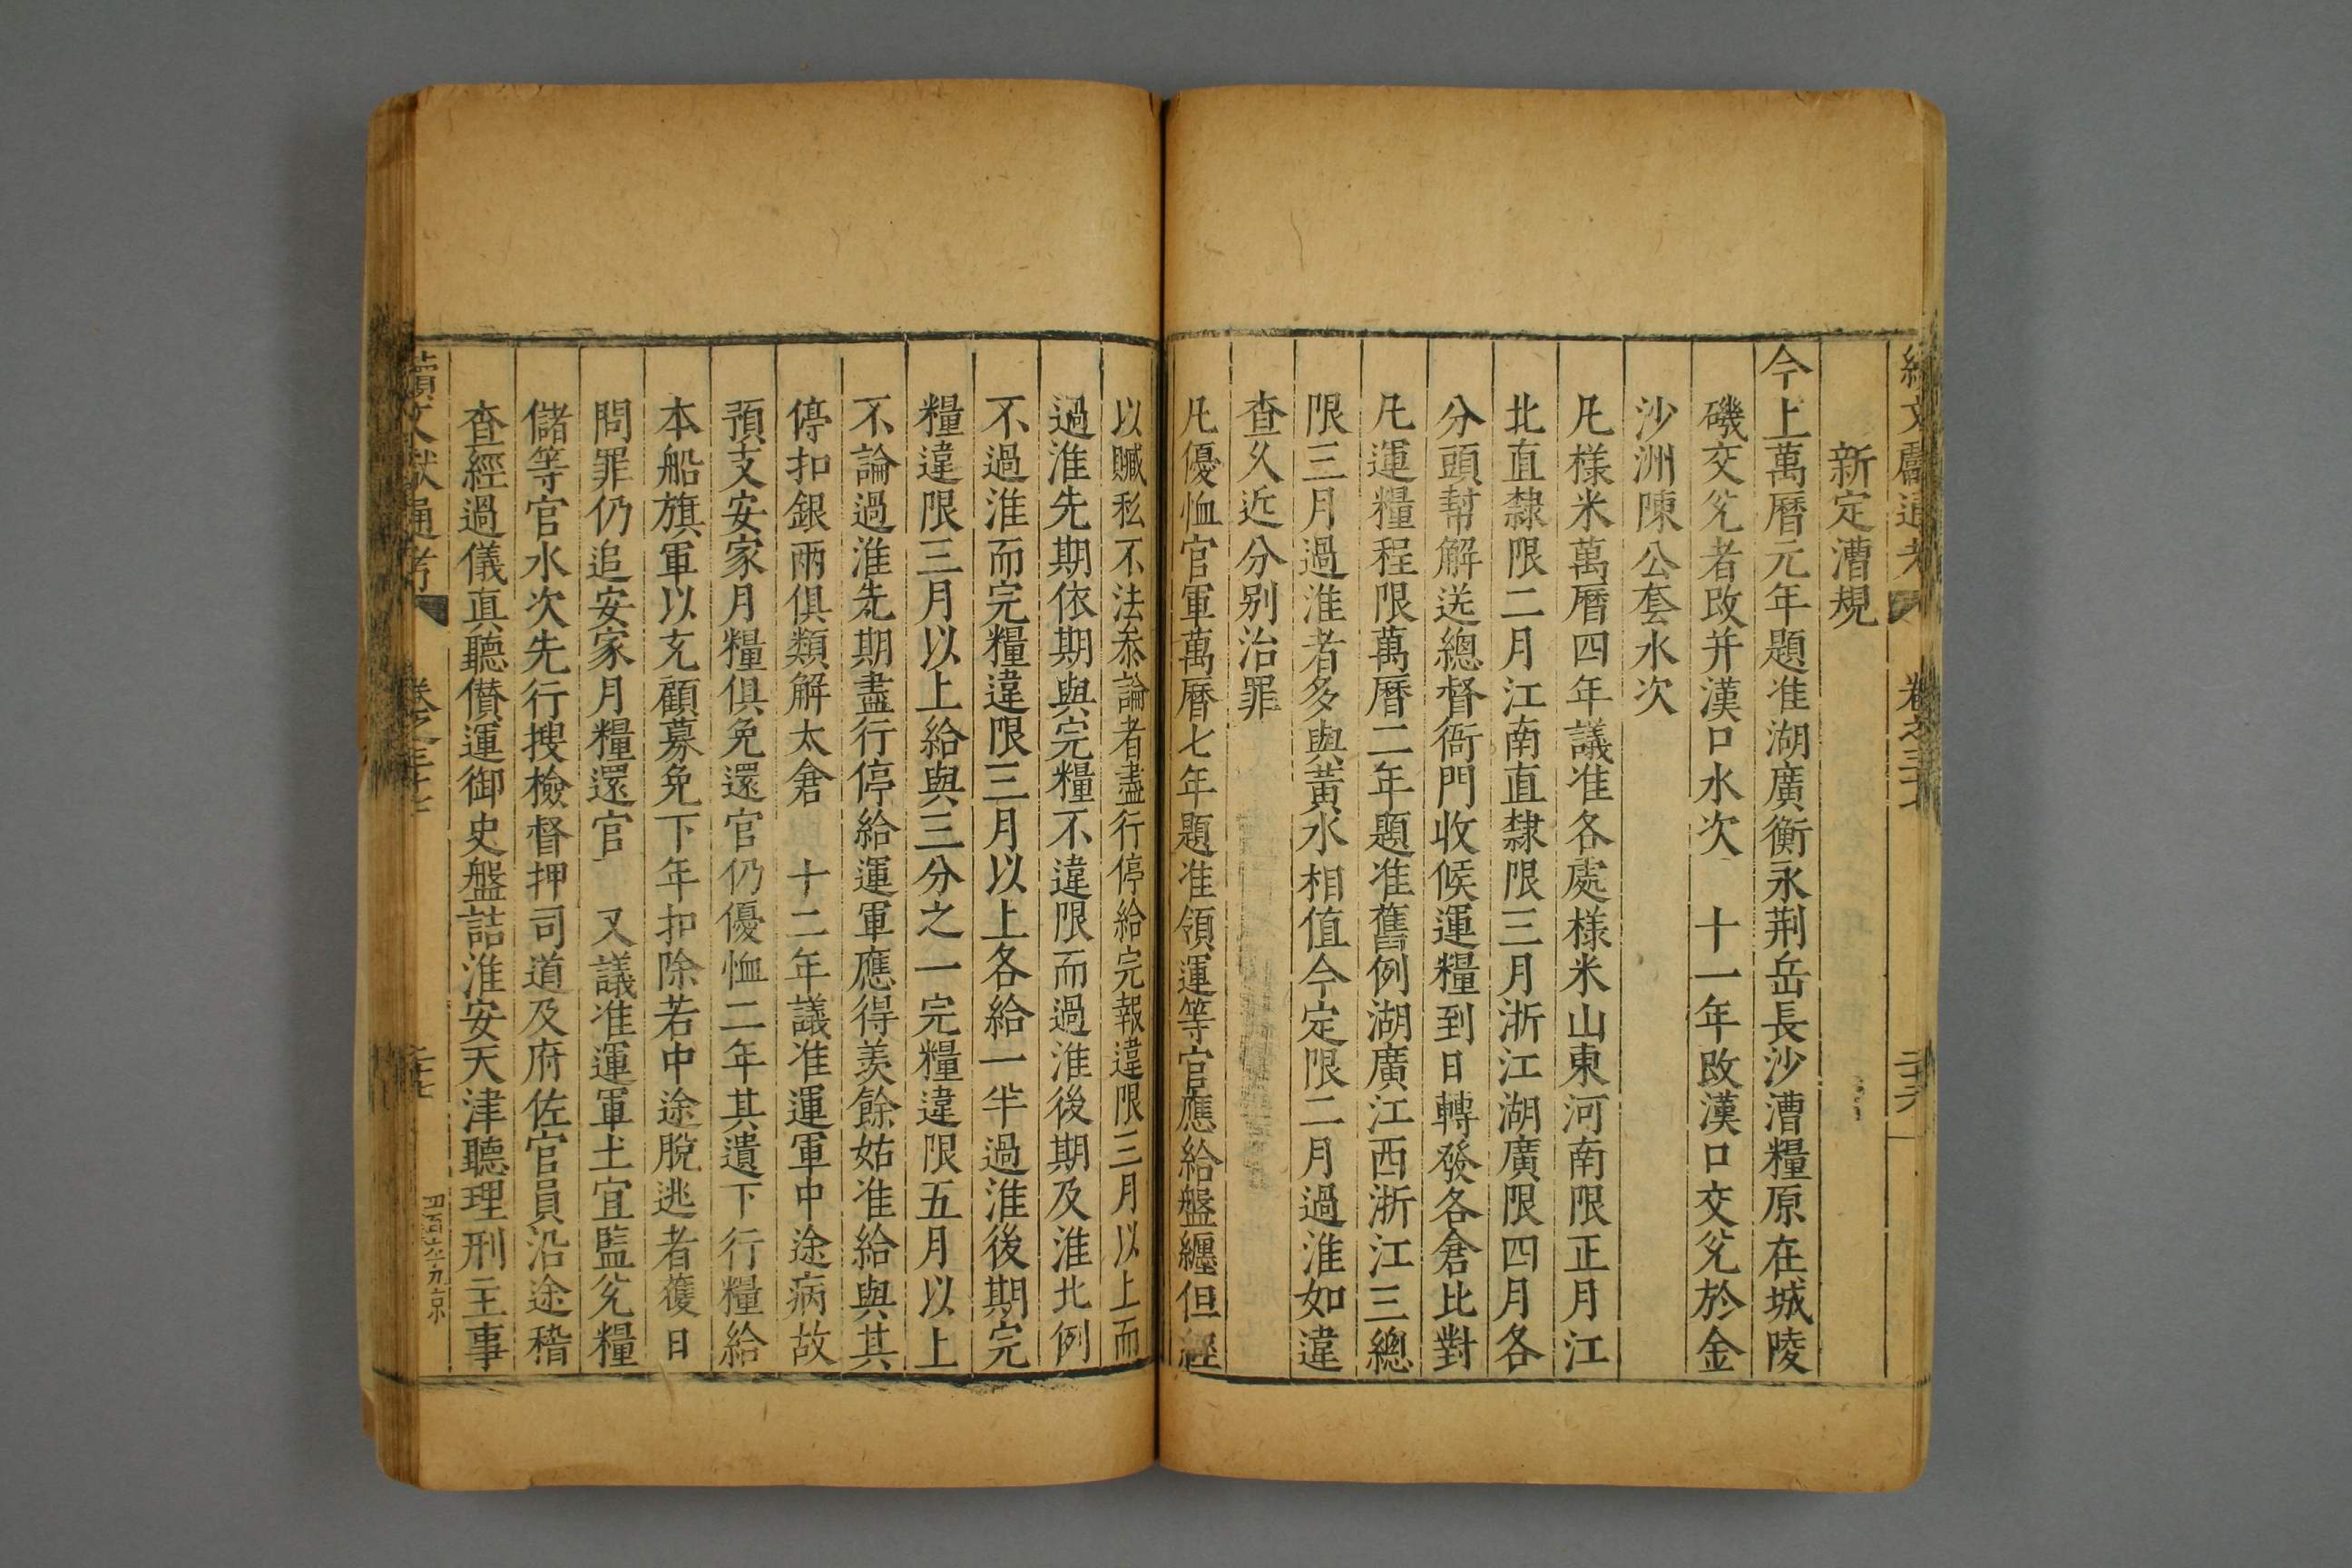 續文獻通考 卷之三十七 二十六
新定漕規
今上萬曆元年題准湖廣衡永荆岳長沙漕糧原在城陵
磯交兌者改并漢口水次 十一年改漢口交兌於金
沙洲陳公套水次
凡樣米萬曆四年議准各處樣米山東河南限正月江
北直隸限二月江南直隸限三月浙江湖廣限四月各
分頭幇解送總督衙門收候運糧到日轉發各倉比對
凡運糧程限萬曆二年題准舊例湖廣江西浙江三總
限三月過淮者多與黃水相值今定限二月過淮如違
查久近分别治罪
凡優恤官軍萬曆七年題准領運等官應給盤纒但經
以贓私不法叅論者盡行停給完報違限三月以上而
過淮先期依期與完糧不違限而過淮後期及淮北例
不過淮而完糧違限三月以上各給一半過淮後期完
糧違限三月以上給與三分之一完糧違限五月以上
不論過淮先期盡行停給運軍應得羨餘姑准給與其
停扣銀兩俱類解太倉 十二年議准運軍中途病故
預支安家月糧俱免還官仍優恤二年其遺下行糧給
本船旗軍以充顧募免下年扣除若中途脫逃者獲日
問罪仍追安家月糧還官 又議准運軍土宜監兌糧
儲等官水次先行搜檢督押司道及府佐官員沿途稽
查經過儀真聽儹運御史盤詰淮安天津聽理刑主事
續文獻通考 卷之三十七 二十七 四百六十九京